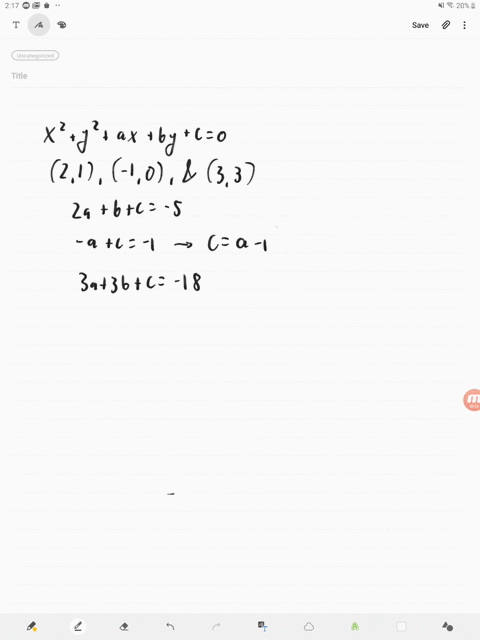 2:17 20%
T Save
Uncategorized
Title
x²+y²+ax+by+c=0
(2,1), (-1,0), & (3,3)
2a+b+c=-5
-a+c=-1 → c=a-1
3a+3b+c=-18